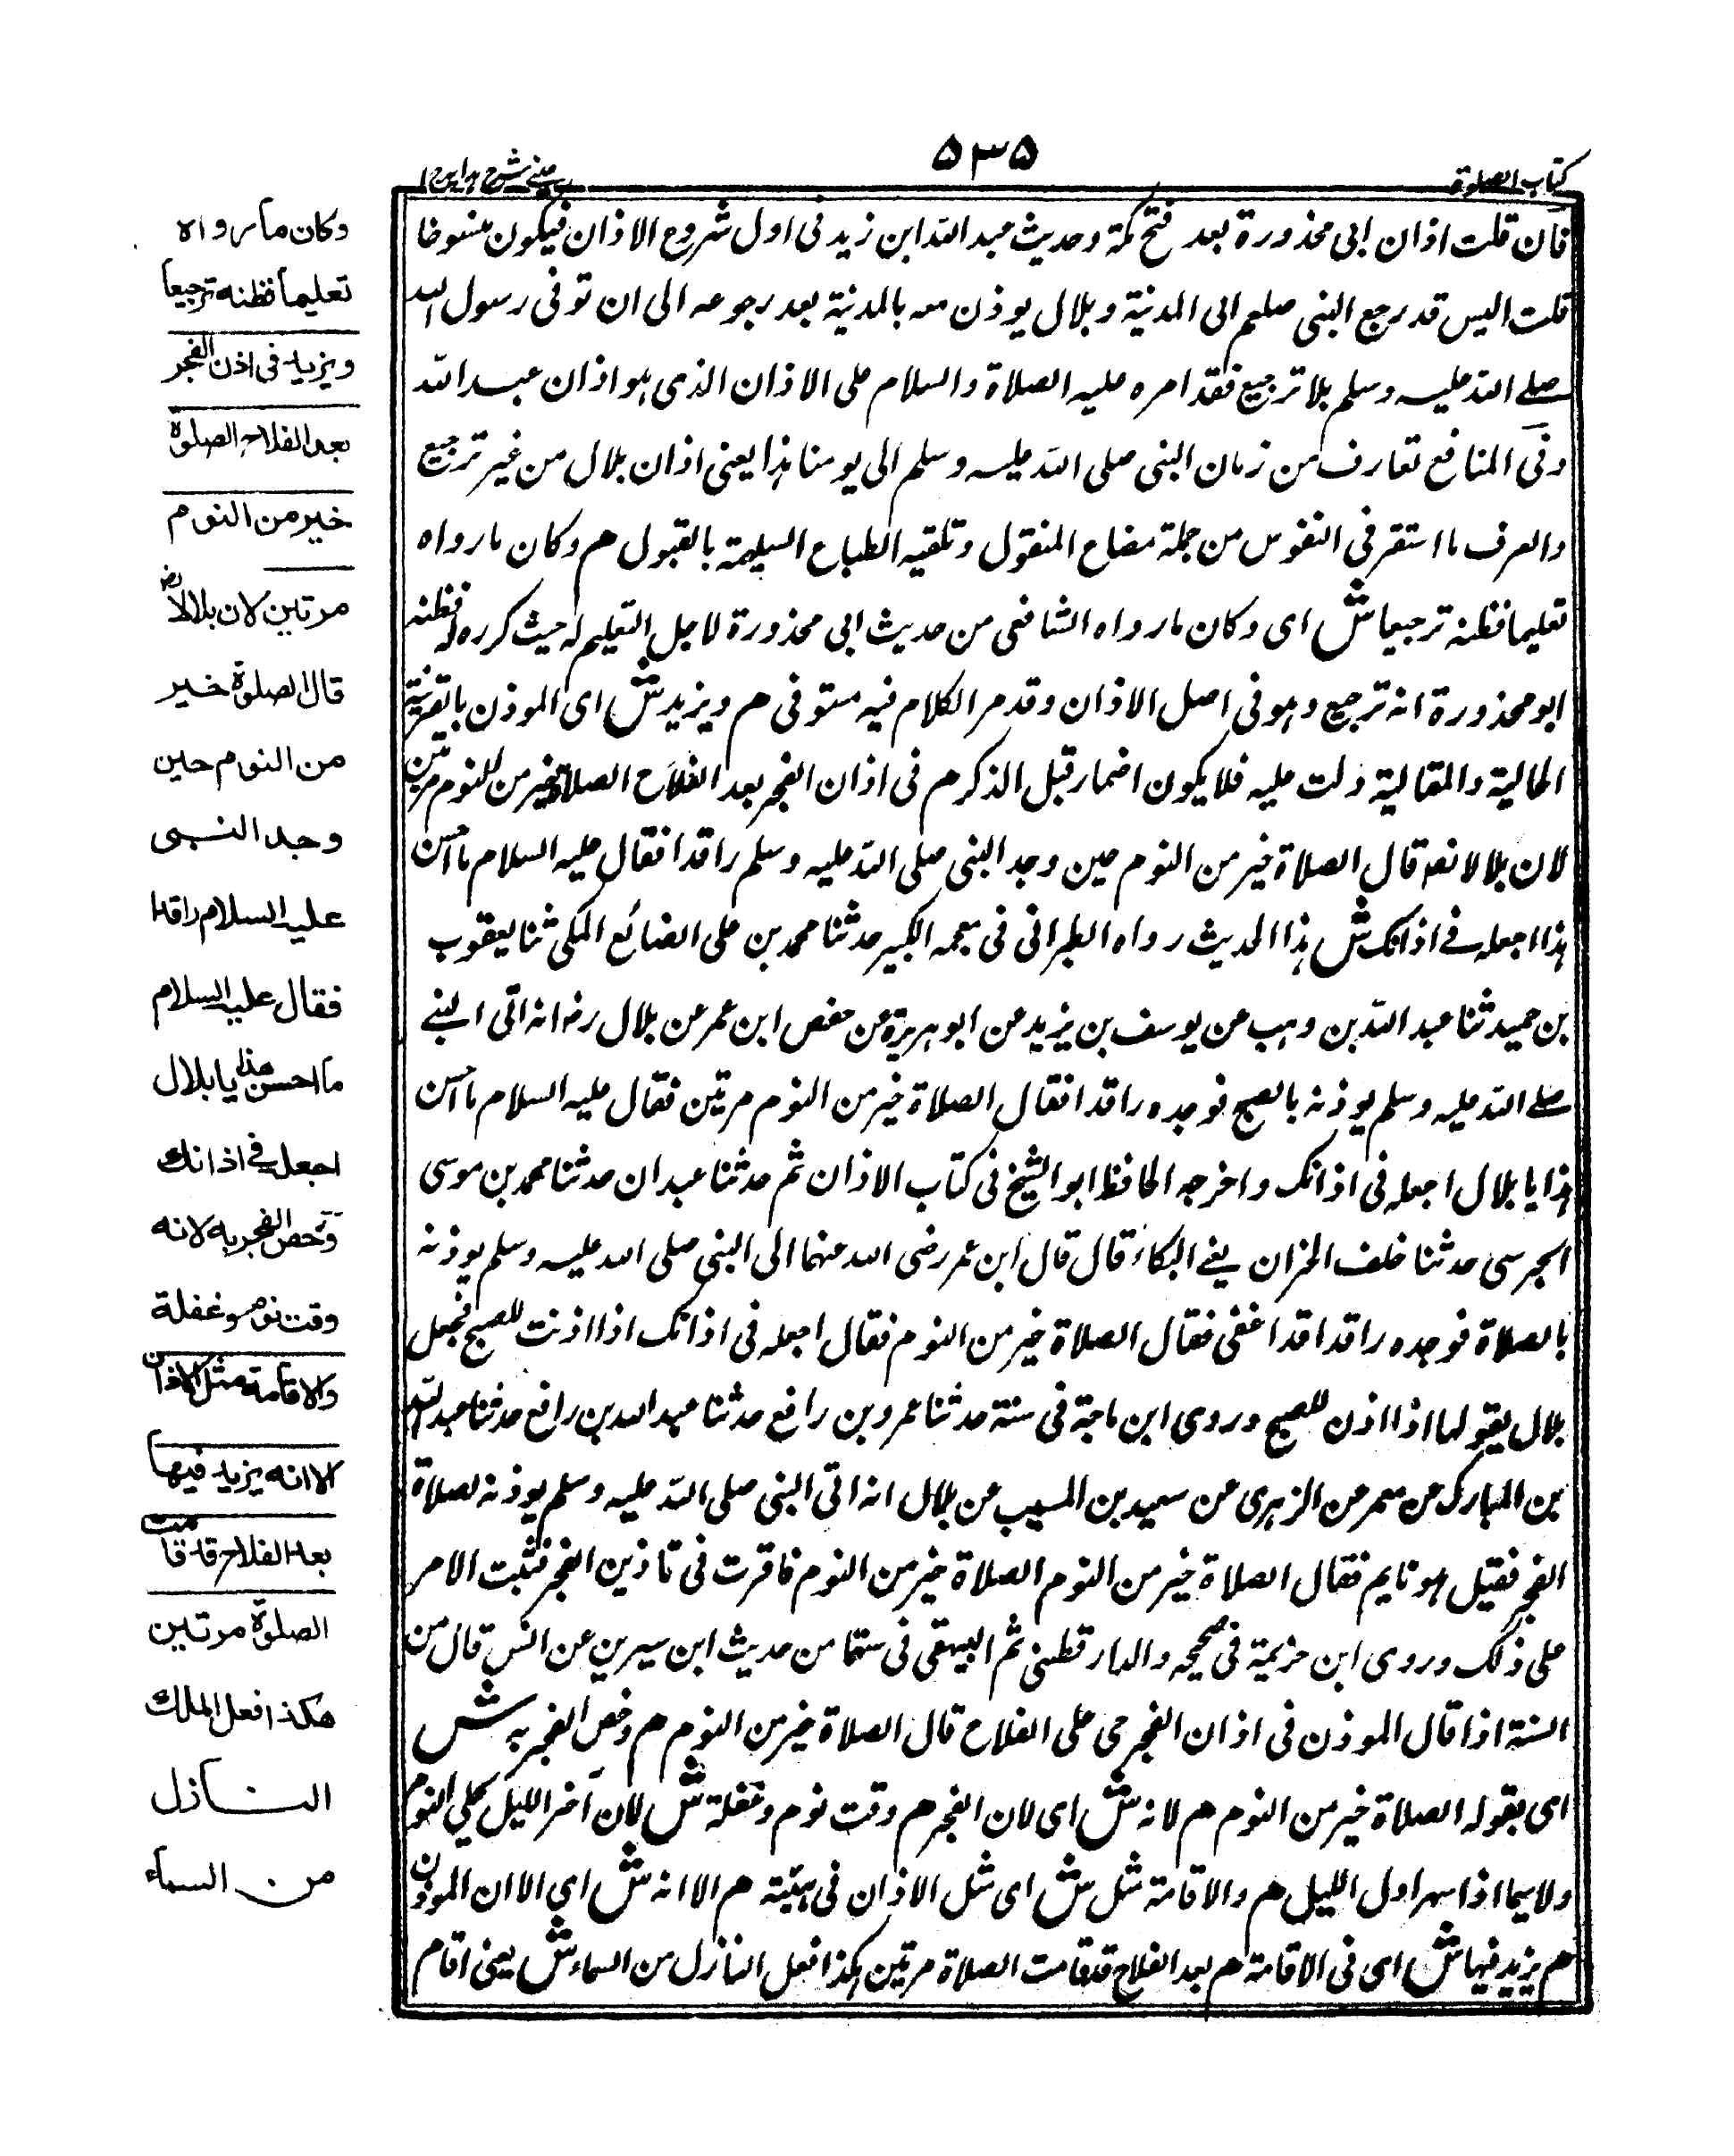 كتاب الصلوة
۵۳۵
عينى شرح هدايه ج ۱
فان قلت اذان ابى محذورة بعد فتح مكة وحديث عبد الله ابن زيد فى اول شروع الاذان فيكون منسوخا
قلت اليس قد رجع النبى صلعم الى المدينة وبلال يوذن معه بالمدينة بعد رجوعه الى ان توفى رسول الله
صلے الله عليه وسلم بلا ترجيع فقد امره عليه الصلاة والسلام على الاذان الذى هو اذان عبد الله
وفى المنافع تعارف من زمان النبى صلى الله عليه وسلم الى يومنا هذا يعنى اذان بلال من غير ترجيع
والعرف ما استقر فى النفوس من جملة مضاع المنقول وتلقيه الطباع السليمة بالقبول هم وكان مارواه
تعليما فظنه ترجيعا ش اى وكان مارواه الشافعى من حديث ابى محذورة لاجل التعليم له حيث كرره له فظنه
ابو محذورة انه ترجيع وهو فى اصل الاذان وقد مر الكلام فيه مستوفى هم ويزيد ش اى الموذن بالقرينة
الحالية والمقالية دلت عليه فلا يكون اضمار قبل الذكر هم فى اذان الفجر بعد الفلاح الصلاة خير من النوم مرتين
لان بلالا رضه قال الصلاة خير من النوم حين وجد النبى صلى الله عليه وسلم راقدا فقال عليه السلام ما احسن
هذا اجعله فے اذانك ش هذا الحديث رواه الطبرانى فى معجمه الكبير حدثنا محمد بن على الصائع المكى ثنا يعقوب
بن حميد ثنا عبد الله بن وهب عن يوسف بن يزيد عن ابو هريرة عن حفص ابن عمر عن بلال رضه انه اتى النبے
صلے الله عليه وسلم يوذنه بالصبح فوجده راقدا فقال الصلاة خير من النوم مرتين فقال عليه السلام ما احسن
هذا يا بلال اجعله فى اذانك واخرجه الحافظ ابو الشيخ فى كتاب الاذان ثم حدثنا عبدان حدثنا محمد بن موسى
الجرسى حدثنا خلف الحزان يفے البكاء قال قال ابن عمر رضى الله عنهما الى النبى صلى الله عليه وسلم يوذنه
بالصلاة فوجده راقدا قد اغفى فقال الصلاة خير من النوم فقال اجعله فى اذانك اذا اذنت للصبح فجعل
بلال يقولها اذا اذن للصبح وروى ابن ماجة فى سننة حدثنا عمرو بن رافع حدثنا عبد الله بن رافع حدثنا عبد الله
بن المبارك عن معمر عن الزهرى عن سعيد بن المسيب عن بلال انه اتى النبى صلى الله عليه وسلم يوذنه لصلاة
الفجر فقيل هو نايم فقال الصلاة خير من النوم الصلاة خير من النوم فاقرت فى تاذين الفجر فثبت الامر
على ذلك وروى ابن خزيمة فى صحيحه والدارقطنى ثم البيهقى فى سننهما من حديث ابن سيرين عن انس قال من
السنة اذا قال الموذن فى اذان الفجر حى على الفلاح قال الصلاة خير من النوم هم وخص الفجر به ش
اى بقوله الصلاة خير من النوم هم لانه ش اى لان الفجر هم وقت نوم وغفلة ش لان آخر الليل يحلى النوم
ولاسيما اذا سهر اول الليل هم والاقامة مثل ش اى مثل الاذان فى هيئته هم الا انه ش اى الا ان الموذن
هم يزيد فيها ش اى فى الاقامة هم بعد الفلاح قد قامت الصلاة مرتين هكذا فعل النازل من السماء ش يعنى اقام
وكان مارواه
تعليما فظنه ترجيعا
ويزيد فى اذن الفجر
بعد الفلاح الصلوة
خير من النوم
مرتين لان بلالا رض
قال الصلوة خير
من النوم حين
وجد النبى
عليه السلام راقدا
فقال عليه السلام
ما احسن هذا يا بلال
اجعله فے اذانك
وخص الفجر به لانه
وقت نوم وغفلة
والاقامة مثل الاذان
الا انه يزيد فيها
بعد الفلاح قد قامت
الصلوة مرتين
هكذا فعل الملك
النازل
من السماء